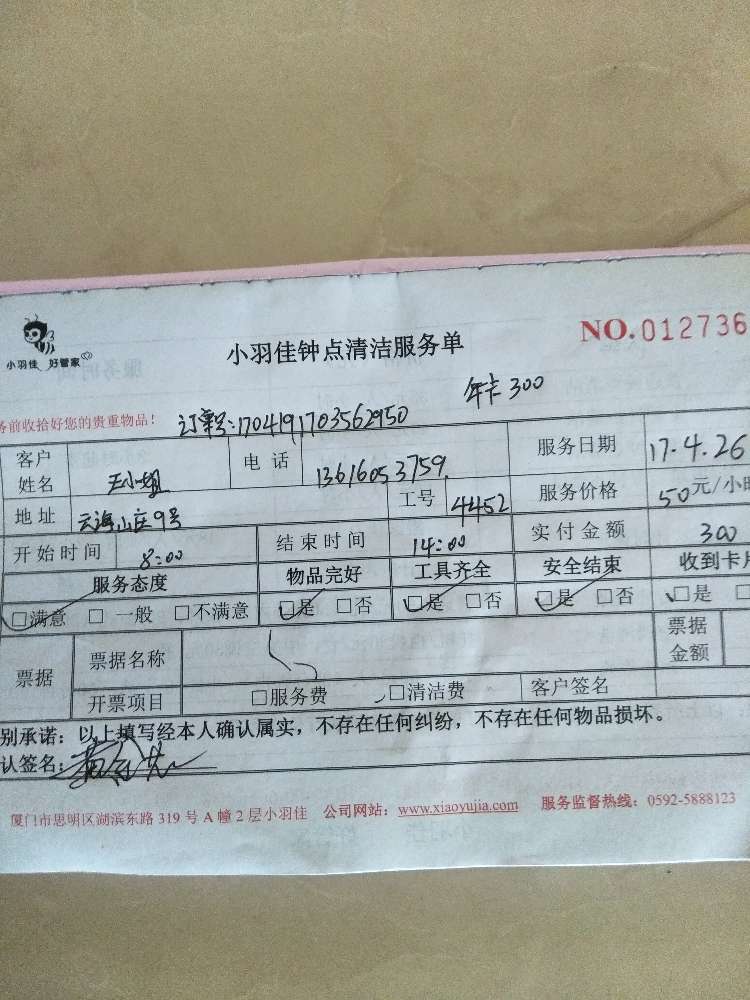 小羽佳 好管家
小羽佳钟点清洁服务单
NO.012736
年卡300
务前收拾好您的贵重物品！ 订单号:1704191703562950
客户姓名 王小姐 电话 13616053759 服务日期 17.4.26
地址 云海山庄9号 工号 4452 服务价格 50元/小时
开始时间 8:00 结束时间 14:00 实付金额 300
服务态度 物品完好 工具齐全 安全结束 收到卡片
□满意 □一般 □不满意 □是 □否 □是 □否 □是 □否 □是 □
票据 票据名称 票据金额
开票项目 □服务费 □清洁费 客户签名
别承诺：以上填写经本人确认属实，不存在任何纠纷，不存在任何物品损坏。
认签名：
厦门市思明区湖滨东路 319 号 A 幢 2 层小羽佳 公司网站：www.xiaoyujia.com 服务监督热线：0592-5888123